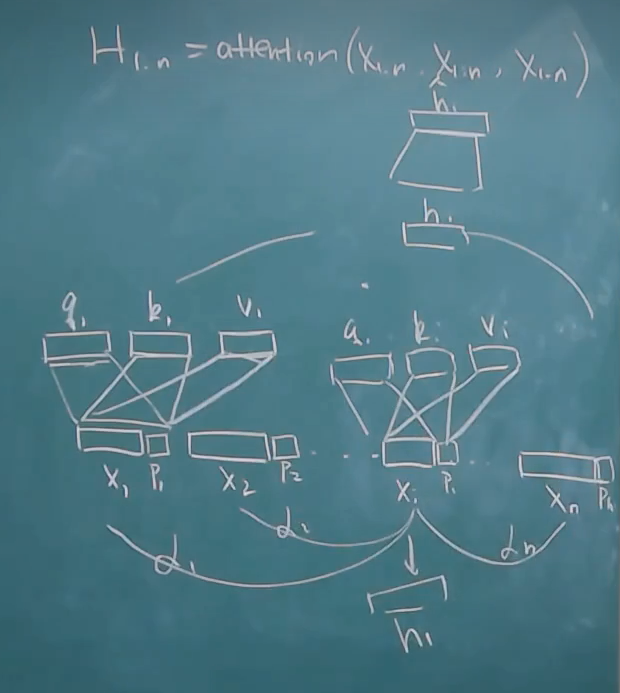 H₁.ₙ = attention(X₁.ₙ, X₁.ₙ, X₁.ₙ)
ĥᵢ
hᵢ
q₁ k₁ v₁
qᵢ kᵢ vᵢ
X₁ P₁ X₂ P₂ ... Xᵢ Pᵢ ... Xₙ Pₙ
α₁ α₂ αₙ
h₁